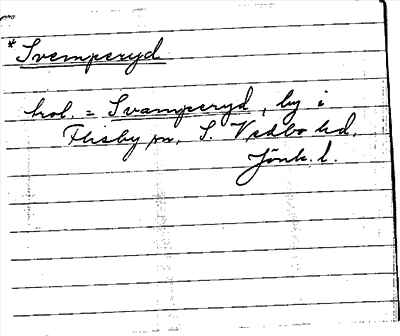 * Svemperyd
hol. = Svamperyd, by i
Flisby sn, S. Vedbo hd.
Jönk. l.